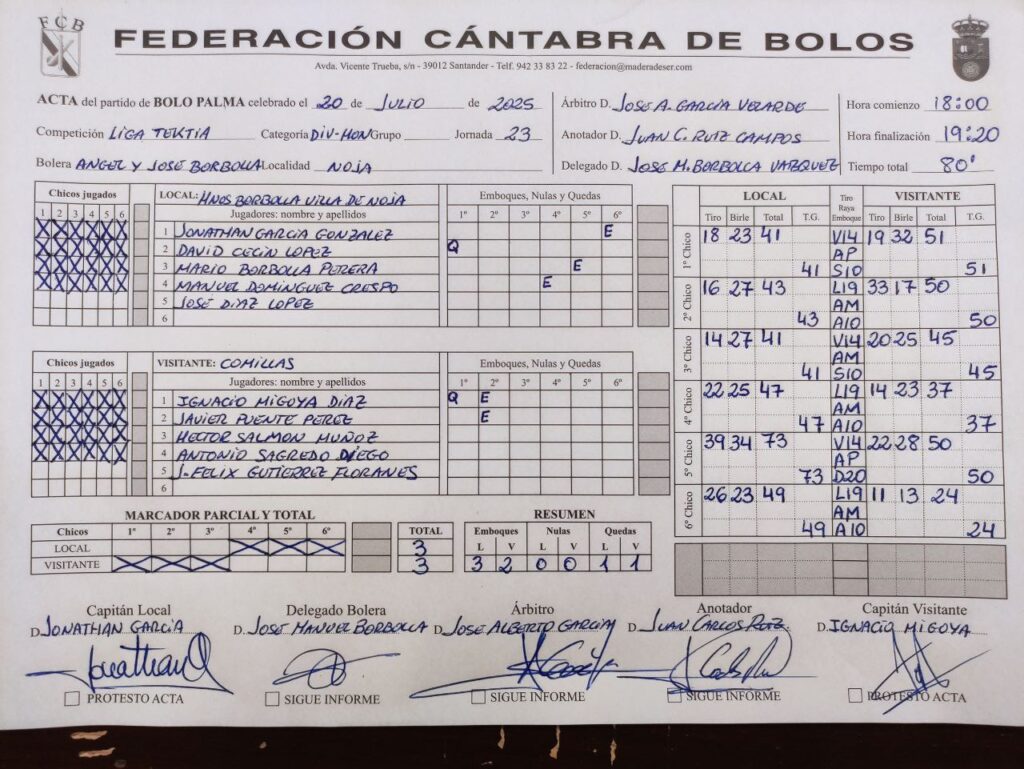 FCB
FEDERACIÓN CÁNTABRA DE BOLOS
Avda. Vicente Trueba, s/n - 39012 Santander - Telf. 942 33 83 22 - federacion@maderadeser.com
ACTA del partido de BOLO PALMA celebrado el 20 de JULIO de 2025
Competición LIGA TEKTIA Categoría DIV-HON Grupo Jornada 23
Bolera ANGEL Y JOSÉ BORBOLLA Localidad NOJA
Árbitro D. JOSE A. GARCÍA VELARDE
Anotador D. JUAN C. RUIZ CAMPOS
Delegado D. JOSE M. BORBOLLA VAZQUEZ
Hora comienzo 18:00
Hora finalización 19:20
Tiempo total 80'
Chicos jugados
1 2 3 4 5 6
LOCAL: HNOS BORBOLLA VILLA DE NOJA
Jugadores: nombre y apellidos
Emboques, Nulas y Quedas
1º 2º 3º 4º 5º 6º
1 JONATHAN GARCÍA GONZALEZ E
2 DAVID CECIN LOPEZ Q
3 MARIO BORBOLLA PERERA E
4 MANUEL DOMINGUEZ CRESPO E
5 JOSÉ DIAZ LOPEZ
6
Chicos jugados
1 2 3 4 5 6
VISITANTE: COMILLAS
Jugadores: nombre y apellidos
Emboques, Nulas y Quedas
1º 2º 3º 4º 5º 6º
1 IGNACIO MIGOYA DIAZ Q E
2 JAVIER PUENTE PEREZ E
3 HECTOR SALMON MUÑOZ
4 ANTONIO SAGREDO DIEGO
5 J-FELIX GUTIERREZ FLORANES
6
LOCAL Tiro Raya Emboque VISITANTE
Tiro Birle Total T.G. Tiro Birle Total T.G.
1º Chico
18 23 41 V14 19 32 51
AP
41 S10 51
2º Chico
16 27 43 L19 33 17 50
AM
43 A10 50
3º Chico
14 27 41 V14 20 25 45
AM
41 S10 45
4º Chico
22 25 47 L19 14 23 37
AM
47 A10 37
5º Chico
39 34 73 V14 22 28 50
AP
73 D20 50
6º Chico
26 23 49 L19 11 13 24
AM
49 A10 24
MARCADOR PARCIAL Y TOTAL
Chicos 1º 2º 3º 4º 5º 6º TOTAL
LOCAL 3
VISITANTE 3
RESUMEN
Emboques Nulas Quedas
L V L V L V
3 2 0 0 1 1
Capitán Local
D. JONATHAN GARCÍA
PROTESTO ACTA
Delegado Bolera
D. JOSÉ MANUEL BORBOLLA
SIGUE INFORME
Árbitro
D. JOSE ALBERTO GARCÍA
SIGUE INFORME
Anotador
D. JUAN CARLOS RUIZ
SIGUE INFORME
Capitán Visitante
D. IGNACIO MIGOYA
PROTESTO ACTA